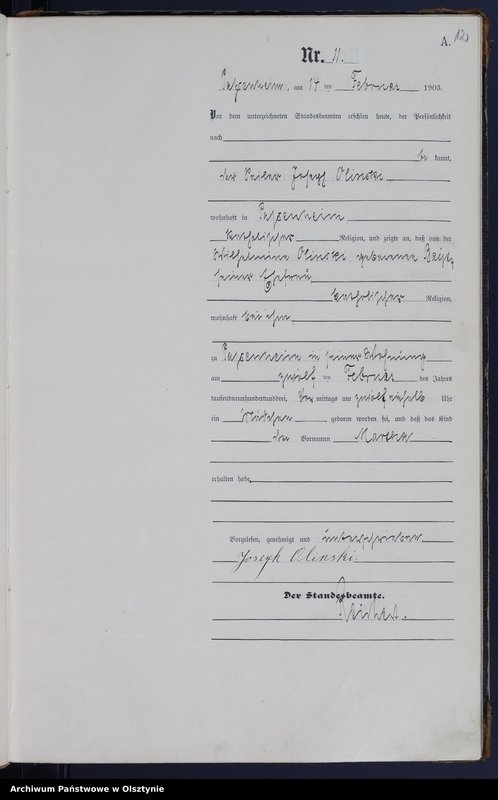 A. 12
Nr. 11.
am 14 ten Februar 1903.
Vor dem unterzeichneten Standesbeamten erschien heute, der Persönlichkeit
nach
be kannt,
der Joseph Olinski
wohnhaft in
katholischer Religion, und zeigte an, daß von der
Wilhelmine Olinski, geborenen
seiner Ehefrau
katholischer Religion,
wohnhaft bei ihm,
zu in seiner Wohnung
am zwölf ten Februar des Jahres
tausendneunhundertunddrei, Vor mittags um Uhr
ein Mädchen geboren worden sei, und daß das Kind
den Vornamen Martha
erhalten habe.
Vorgelesen, genehmigt und unterschrieben
Joseph Olinski.
Der Standesbeamte.
Archiwum Państwowe w Olsztynie